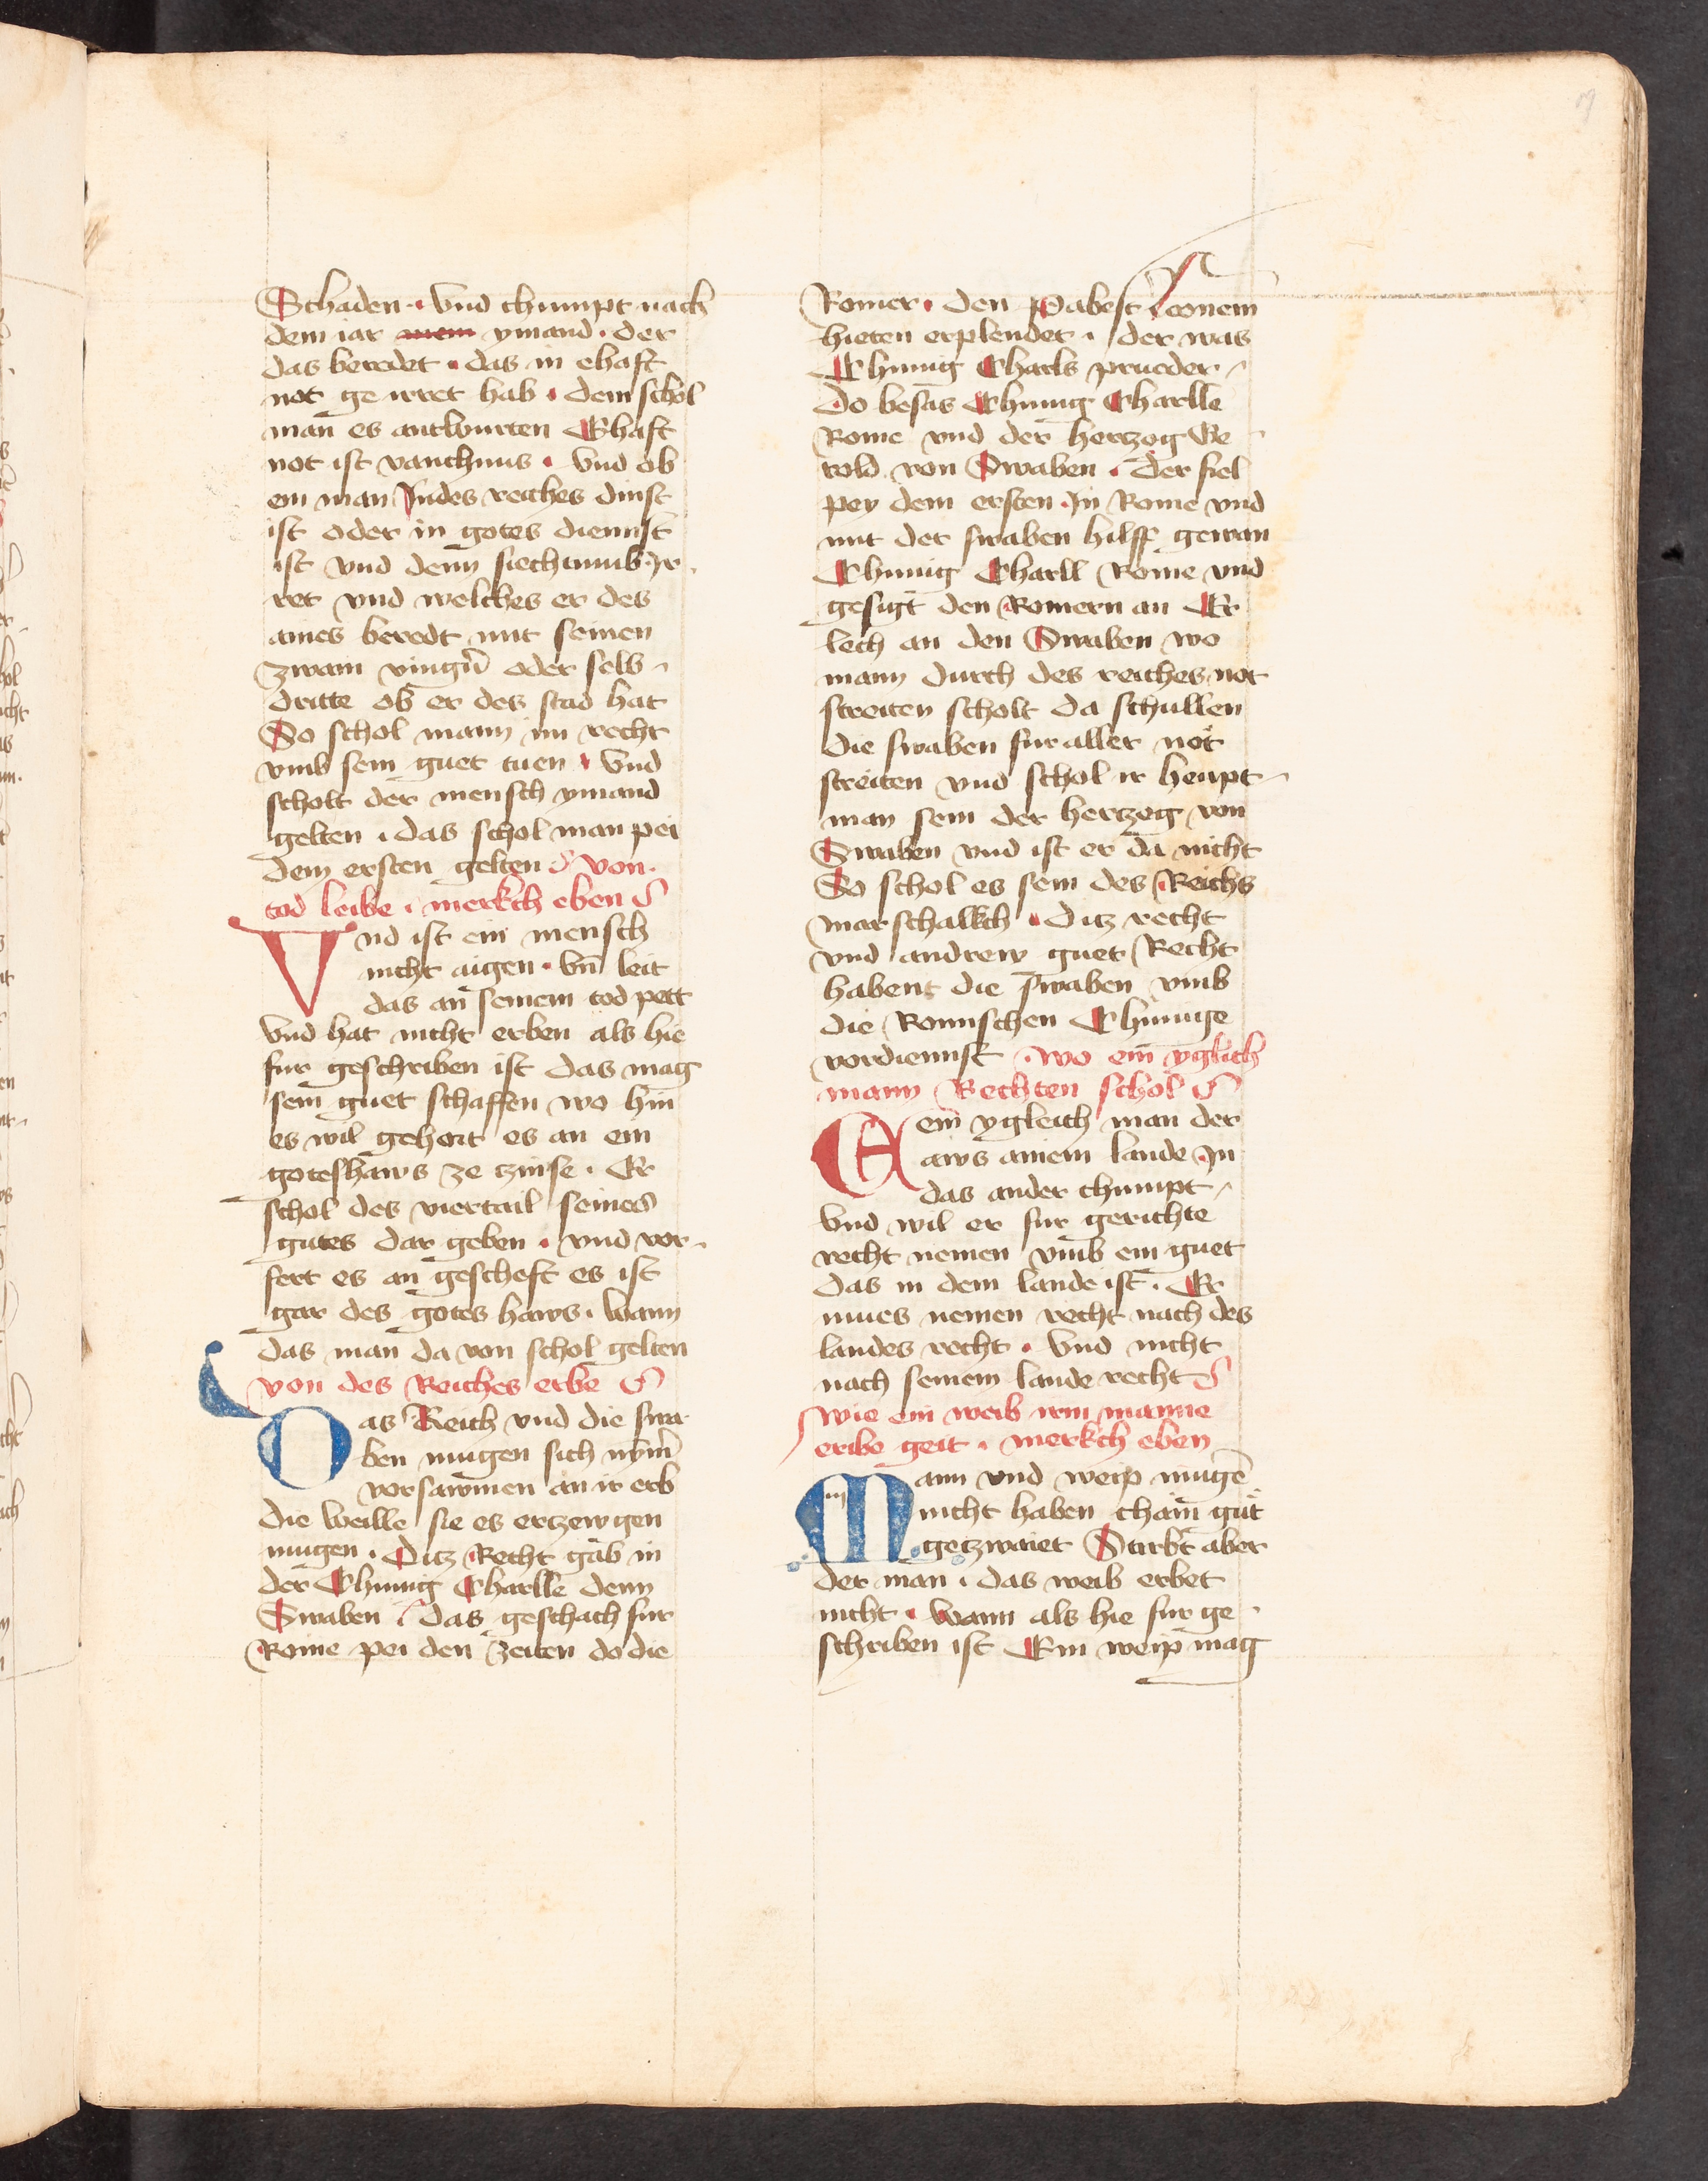 Schaden · Vnd chumpt nach
dem iar mem ymand · der
das beredet · das in ehaft
not ge irret hab · dem schol
man es antwurten Ehaft
not ist vanchnus · Vnd ob
ein man Jndes reiches dinst
ist oder in gotes diennst
ist vnd denn siechtumb Jr
ret vnd welches er des
aines beredt mit seinen
zwain vingern̄ oder selb
dritte ob er des stad hat
So schol mann im recht
vmb sein guet tuen · Vnd
scholt der mensch ymand
gelten · das schol man pei
dem ersten gelten von ·
tod leibe · merkch eben
Vnd ist ein mensch
nicht aigen · Vn̄ leit
das an seinem tod pett
Vnd hat nicht erben als hie
fur geschriben ist das mag
sein guet schaffen wo hin
es wil gehort es an ein
goteshaws ze zinse · Er
schol des viertail seines
gutes dar geben · vnd vor
fert es an gescheft es ist
gar des gotes haws · wann
das man da von schol gelten
von des Reiches erbe
Das Reich vnd die swa
ben mugen sich nym̄
vorsawmen an ir erb
die weille sie es ertzewgen
mugen · Ditz Recht gab in
der Chunig Charlle denn
Swaben das geschach fur
Rome pei den zeiten do die
Romer · den Pabest Leonem
hieten erplendet · der was
Chunig Charls prueder
Do besas Chunig Charlle
Rome vnd der hertzog Ge
rold von Swaben · der fiel
pey dem ersten · Jn Rome vnd
mit der swaben hilff gewan
Chunig Charll Rome vnd
gesigt den Romern an Er
lech an den Swaben wo
mann durch des reiches not
streiten scholt da schullen
die swaben fur aller not
streiten vnd schol ir heupt
man sein der hertzog von
Swaben vnd ist er da nicht
So schol es sein des Reichs
marschallkch · Ditz recht
vnd andrew guet Recht
habent die swaben vmb
die Romischen Chunige
vordiennst · wo ein yglich
mann Rechten schol
Ein ygleich man der
aws ainem lande Jn
das ander chumpt
Vnd wil er fur gerichte
recht nemen vmb ein guet
das in dem lande ist · Er
mues nemen recht nach des
landes recht · Vnd nicht
nach seinem lande recht
wie ein weib irm manne
eribe geit · merkch eben
Mann vnd weip mugē
nicht haben chain gut
getzwaiet Stirbt aber
der man · das weib erbet
nicht · wann als hie fur ge
schriben ist Ein weip mag